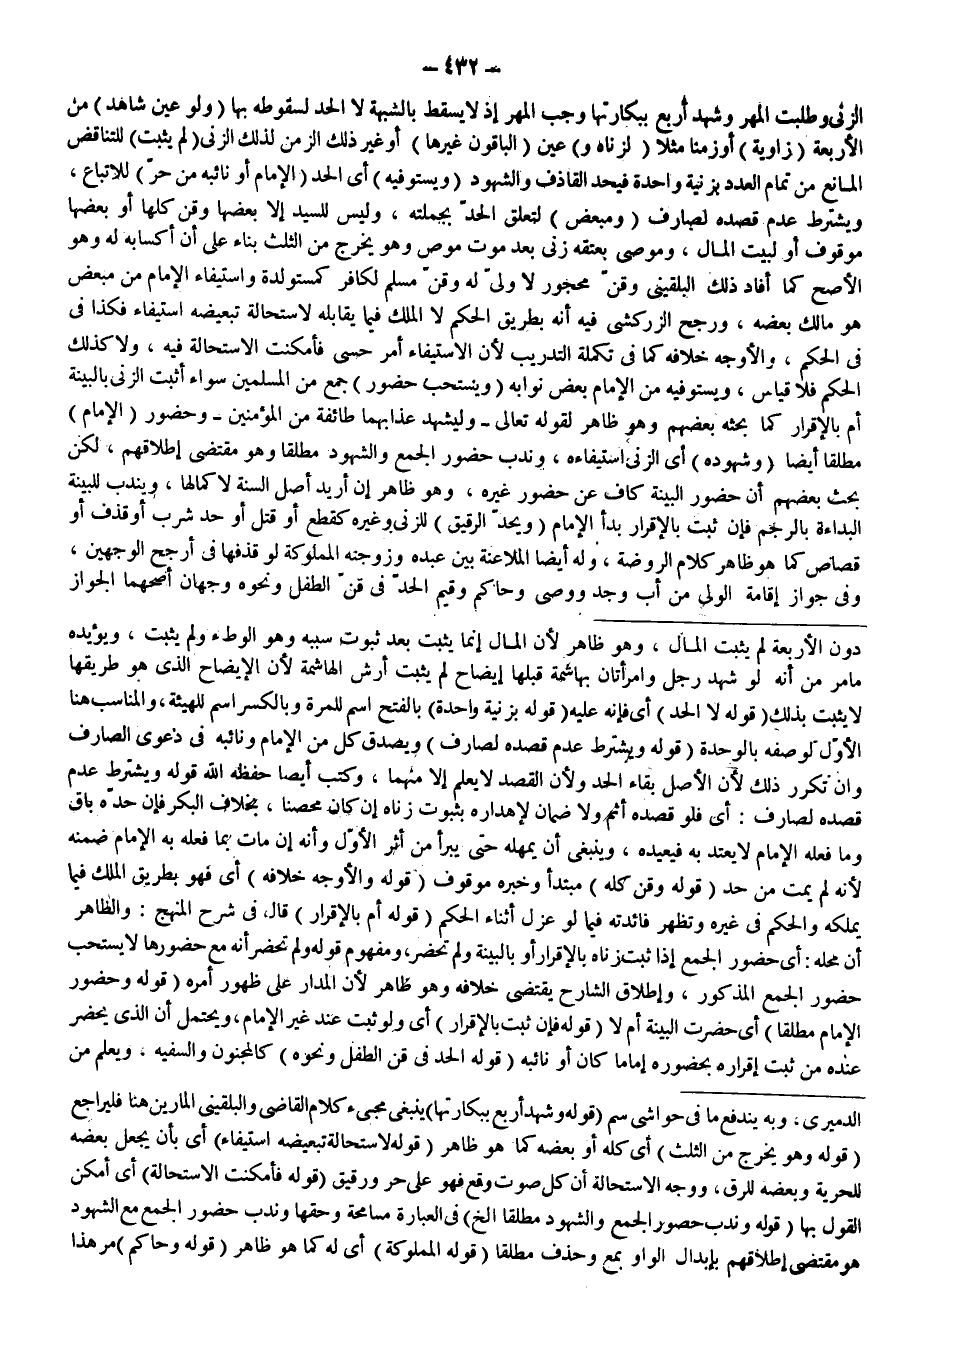 – ٤٣٢ –
الزنى وطلبت المهر وشهد أربع ببكارتها وجب المهر إذ لا يسقط بالشبهة لا الحد لسقوطه بها ( ولو عين شاهد ) من
الأربعة ( زاوية ) أو زمنا مثلا ( لزناه و) عين ( الباقون غيرها ) أو غير ذلك الزمن لذلك الزنى ( لم يثبت) للتناقض
المانع من تمام العدد بزنية واحدة فيحد القاذف والشهود ( ويستوفيه ) أى الحد ( الإمام أو نائبه من حرّ ) للاتباع ،
ويشترط عدم قصده لصارف ( ومبعض ) لتعلق الحدّ بجملته ، وليس للسيد إلا بعضها وقن كلها أو بعضها
موقوف أو لبيت المال ، وموصى بعتقه زنى بعد موت موص وهو يخرج من الثلث بناء على أن أكسابه له وهو
الأصح كما أفاد ذلك البلقينى وقنّ محجور لا ولىّ له وقنّ مسلم لكافر كمستولدة واستيفاء الإمام من مبعض
هو مالك بعضه ، ورجح الزركشى فيه أنه بطريق الحكم لا الملك فيما يقابله لاستحالة تبعيضه استيفاء فكذا فى
فى الحكم ، والأوجه خلافه كما فى تكملة التدريب لأن الاستيفاء أمر حسى فأمكنت الاستحالة فيه ، ولا كذلك
الحكم فلا قياس ، ويستوفيه من الإمام بعض نوابه ( ويستحب حضور ) جمع من المسلمين سواء أثبت الزنى بالبينة
أم بالإقرار كما بحثه بعضهم وهو ظاهر لقوله تعالى ـ وليشهد عذابهما طائفة من المؤمنين ـ وحضور ( الإمام )
مطلقا أيضا ( وشهوده ) أى الزنى استيفاءه ، وندب حضور الجمع والشهود مطلقا وهو مقتضى إطلاقهم ، لكن
بحث بعضهم أن حضور البينة كاف عن حضور غيره ، وهو ظاهر إن أريد أصل السنة لا كمالها ، ويندب للبينة
البداءة بالرجم فإن ثبت بالإقرار بدأ الإمام ( ويحدّ الرقيق ) للزنى وغيره كقطع أو قتل أو حد شرب أو قذف أو
قصاص كما هو ظاهر كلام الروضة ، وله أيضا الملاعنة بين عبده وزوجته المملوكة لو قذفها فى أرجح الوجهين ،
وفى جواز إقامة الولى من أب وجد ووصى وحاكم وقيم الحدّ فى قنّ الطفل ونحوه وجهان أصحهما الجواز
دون الأربعة لم يثبت المال ، وهو ظاهر لأن المال إنما يثبت بعد ثبوت سببه وهو الوطء ولم يثبت ، ويؤيده
مامر من أنه لو شهد رجل وامرأتان بهاشمة قبلها إيضاح لم يثبت أرش الهاشمة لأن الإيضاح الذى هو طريقها
لايثبت بذلك ( قوله لا الحد ) أى فإنه عليه ( قوله بزنية واحدة) بالفتح اسم للمرة وبالكسر اسم للهيئة ، والمناسب هنا
الأوّل لوصفه بالوحدة ( قوله ويشترط عدم قصده لصارف ) ويصدق كل من الإمام ونائبه فى دعوى الصارف
وان تكرر ذلك لأن الأصل بقاء الحد ولأن القصد لا يعلم إلا منهما ، وكتب أيضا حفظه الله قوله ويشترط عدم
قصده لصارف : أى فلو قصده أثم ولا ضمان لإهداره بثبوت زناه إن كان محصنا ، بخلاف البكر فإن حدّه باق
وما فعله الإمام لايعتد به فيعيده ، وينبغى أن يمهله حتى يبرأ من أثر الأوّل وأنه إن مات بما فعله به الإمام ضمنه
لأنه لم يمت من حد ( قوله وقن كله ) مبتدأ وخبره موقوف ( قوله والأوجه خلافه ) أى فهو بطريق الملك فيما
يملكه والحكم فى غيره وتظهر فائدته فيما لو عزل أثناء الحكم ( قوله أم بالإقرار ) قال فى شرح المنهج : والظاهر
أن محله : أى حضور الجمع إذا ثبت زناه بالإقرار أو بالبينة ولم تحضر ، ومفهوم قوله ولم تحضر أنه مع حضورها لا يستحب
حضور الجمع المذكور ، وإطلاق الشارح يقتضى خلافه وهو ظاهر لأن المدار على ظهور أمره ( قوله وحضور
الإمام مطلقا ) أى حضرت البينة أم لا ( قوله فإن ثبت بالإقرار ) أى ولو ثبت عند غير الإمام ، ويحتمل أن الذى يحضر
عنده من ثبت إقراره بحضوره إماما كان أو نائبه ( قوله الحد فى قن الطفل ونحوه ) كالمجنون والسفيه ، ويعلم من
الدميرى ، وبه يندفع ما فى حواشى سم ( قوله وشهد أربع ببكارتها) ينبغى مجىء كلام القاضى والبلقينى المارين هنا فليراجع
( قوله وهو يخرج من الثلث ) أى كله أو بعضه كما هو ظاهر ( قوله لاستحالة تبعيضه استيفاء) أى بأن يجعل بعضه
للحرية وبعضه للرق ، ووجه الاستحالة أن كل صوت وقع فهو على حر ورقيق (قوله فأمكنت الاستحالة) أى أمكن
القول بها ( قوله وندب حضور الجمع والشهود مطلقا الخ) فى العبارة مسامحة وحقها وندب حضور الجمع مع الشهود
هو مقتضى إطلاقهم بإبدال الواو بمع وحذف مطلقا ( قوله المملوكة ) أى له كما هو ظاهر ( قوله وحاكم ) مر هذا